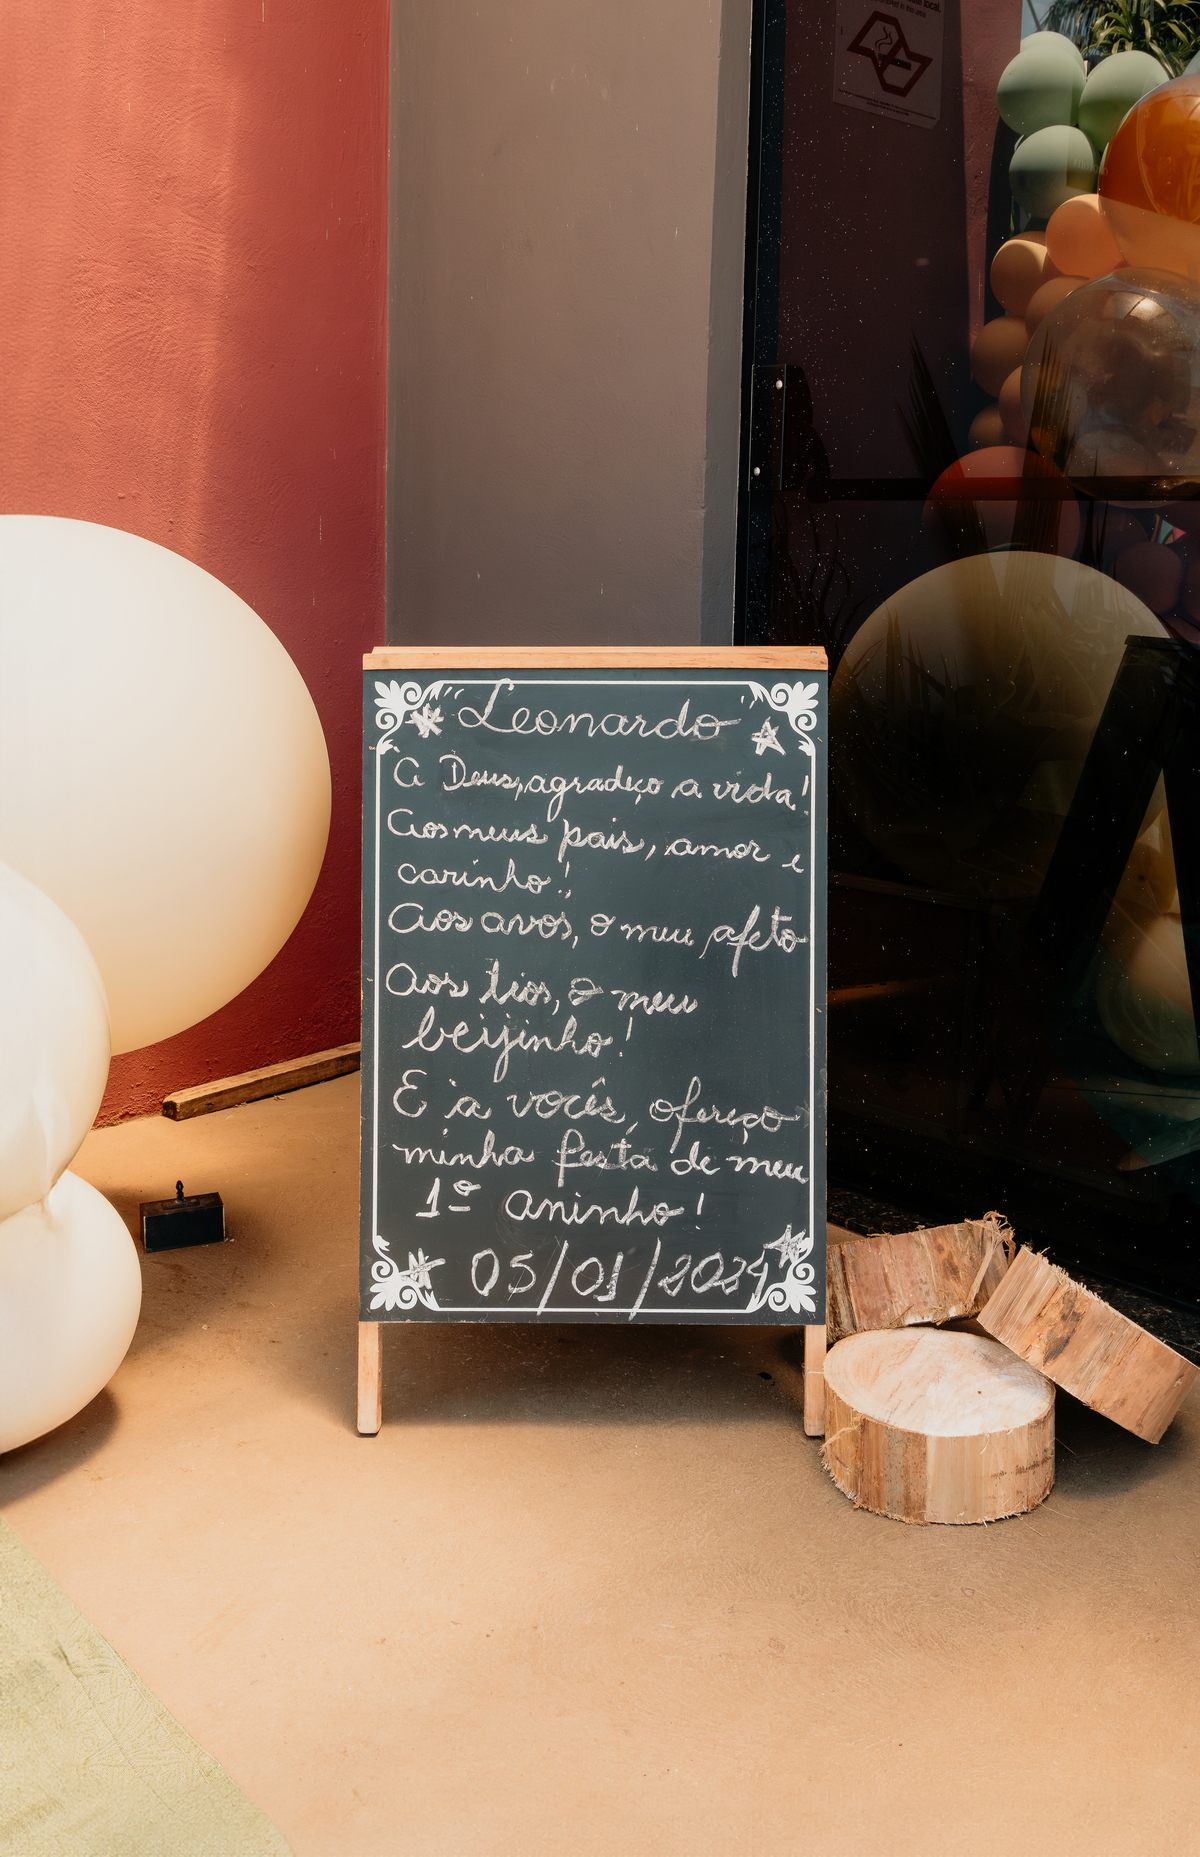 Leonardo
A Deus, agradeço a vida!
Aos meus pais, amor e
carinho!
Aos avós, o meu afeto
Aos tios, o meu
beijinho!
E a vocês, ofereço
minha festa de meu
1º aninho!
05/01/2024